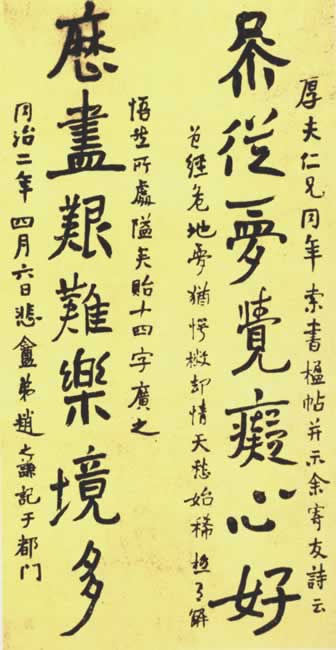 厚夫仁兄同年索書楹帖并示余寄友詩云
參從夢覺癡心好
曾經危地夢猶愕撇却情天愁始稀極了解
悟然所處隘矣貽十四字廣之
厯盡艱難樂境多
同治二年四月六日悲盦弟趙之謙記于都門